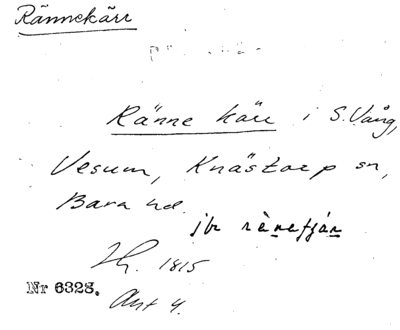 Rännekärr
Ränne kärr i S. Vång,
Vesum, Knästorp sn,
Bara hd.
jbr
1815
Nr 6328.
Akt 4.